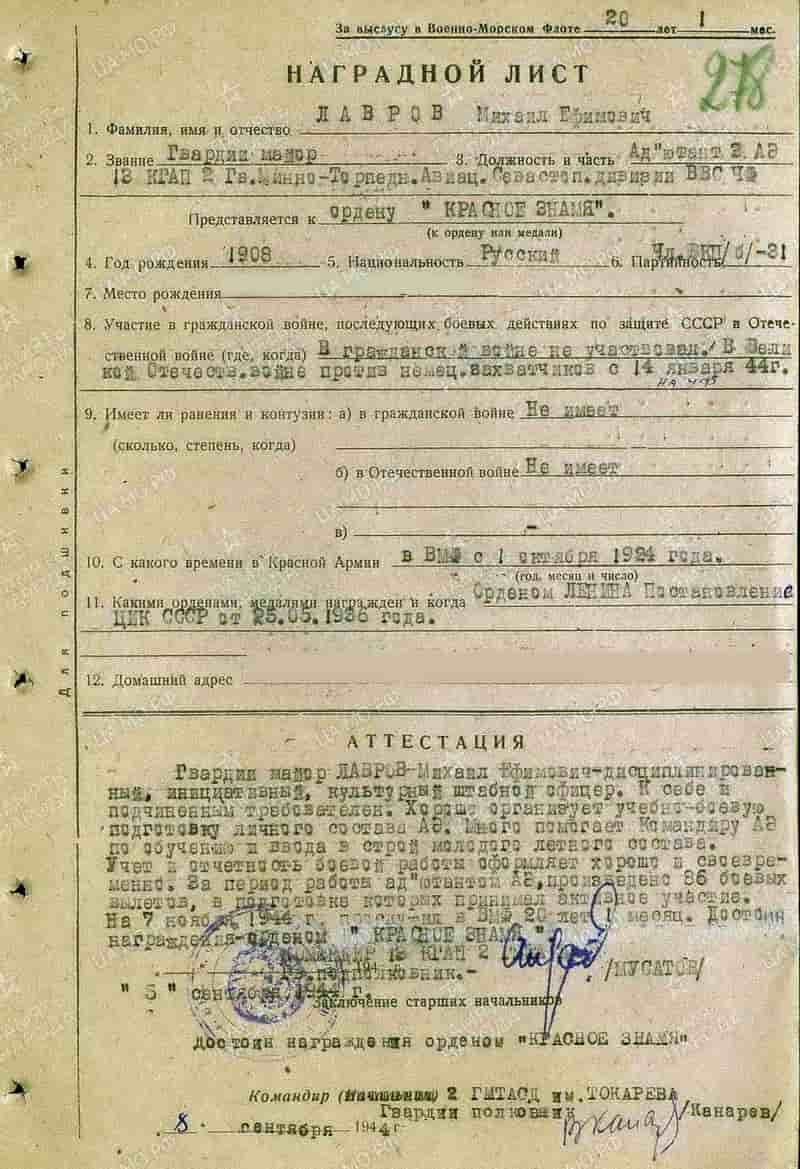 За выслугу в Военно-Морском Флоте 20 лет 1 мес.
278
НАГРАДНОЙ ЛИСТ
ЛАВРОВ Михаил Ефимович
1. Фамилия, имя и отчество
2. Звание Гвардии майор 3. Должность и часть Ад"ютант 2 АЭ
13 КГАП 2 Гв.Минно-Торпедн.Авиац.Севастоп.дивизии ВВС ЧФ
Представляется к ордену " КРАСНОЕ ЗНАМЯ".
(к ордену или медали)
4. Год рождения 1908 5. Национальность Русский 6. Партийность Чл.ВКП/б/-31
7. Место рождения
8. Участие в гражданской войне, последующих боевых действиях по защите СССР и Отече-
ственной войне (где, когда) В гражданской войне не участвовал. В Вели
кой Отечеств.войне против немец.захватчиков с 14 января 44г.
на ЧФ
9. Имеет ли ранения и контузии: а) в гражданской войне Не имеет
(сколько, степень, когда)
б) в Отечественной войне Не имеет
в) -
10. С какого времени в Красной Армии в ВМФ с 1 октября 1924 года.
(год, месяц и число)
11. Какими орденами, медалями награжден и когда Орденом ЛЕНИНА Постановление
ЦИК СССР от 25.05.1936 года.
12. Домашний адрес
для подшивки
АТТЕСТАЦИЯ
Гвардии майор ЛАВРОВ-Михаил Ефимович-дисциплинирован-
ный, инициативный, культурный штабной офицер. К себе и
подчиненным требователен. Хорошо организует учебно-боевую
подготовку личного состава АЭ. Много помогает Командиру АЭ
по обучению и ввода в строй молодого летного состава.
Учет и отчетность боевой работы оформляет хорошо и своевре-
менно. За период работы ад"ютантом АЭ,произведено 86 боевых
вылетов, в подготовке которых принимал активное участие.
На 7 ноября 1944 г. в ВМФ 20 лет 1 месяц. Достоин
награждения-орденом " КРАСНОЕ ЗНАМЯ "
КОМАНДИР 13 КГАП 2
Гв.подполковник.- /МУСАТОВ/
" 5 " сентября 1944 г.
Заключение старших начальников
Достоин награждения орденом "КРАСНОЕ ЗНАМЯ"
Командир (Начальник) 2 ГМТАСД им.ТОКАРЕВА
Гвардии полковник /Канарев/
8 сентября 1944 г